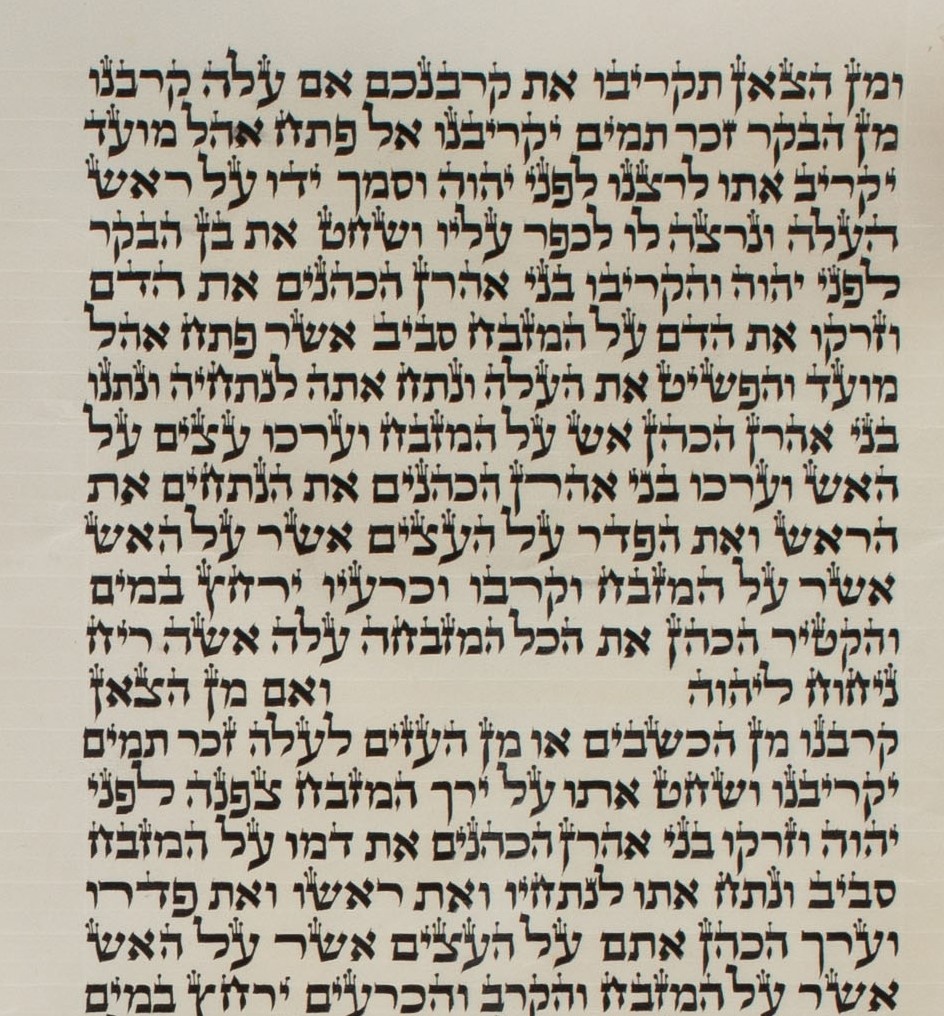 ומן הצאן תקריבו את קרבנכם אם עלה קרבנו
מן הבקר זכר תמים יקריבנו אל פתח אהל מועד
יקריב אתו לרצנו לפני יהוה וסמך ידו על ראש
העלה ונרצה לו לכפר עליו ושחט את בן הבקר
לפני יהוה והקריבו בני אהרן הכהנים את הדם
וזרקו את הדם על המזבח סביב אשר פתח אהל
מועד והפשיט את העלה ונתח אתה לנתחיה ונתנו
בני אהרן הכהן אש על המזבח וערכו עצים על
האש וערכו בני אהרן הכהנים את הנתחים את
הראש ואת הפדר על העצים אשר על האש
אשר על המזבח וקרבו וכרעיו ירחץ במים
והקטיר הכהן את הכל המזבחה עלה אשה ריח
ניחוח ליהוה ואם מן הצאן
קרבנו מן הכשבים או מן העזים לעלה זכר תמים
יקריבנו ושחט אתו על ירך המזבח צפנה לפני
יהוה וזרקו בני אהרן הכהנים את דמו על המזבח
סביב ונתח אתו לנתחיו ואת ראשו ואת פדרו
וערך הכהן אתם על העצים אשר על האש
אשר על המזבח והקרב והכרעים ירחץ במים